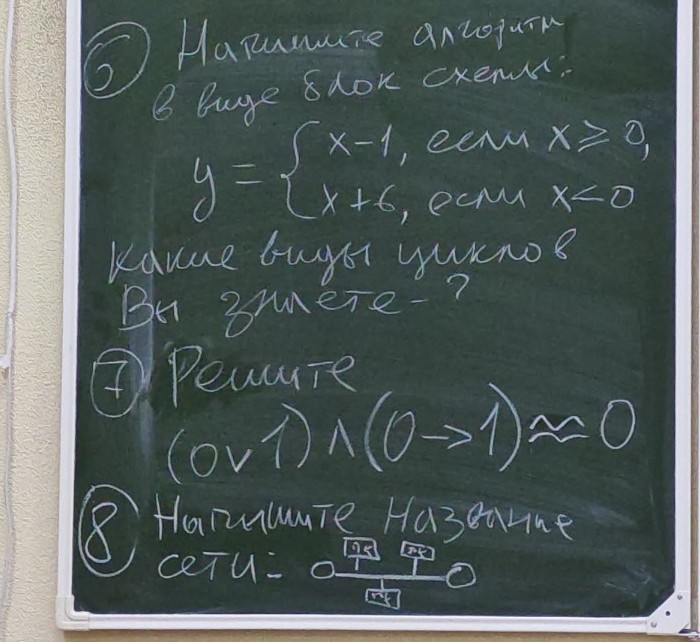 6 Напишите алгоритм
в виде блок схемы:
y = { x-1, если x ≥ 0,
x+6, если x < 0
Какие виды циклов
Вы знаете - ?
7 Решите
(0 ∨ 1) ∧ (0 -> 1) ≈ 0
8 Напишите название
сети:
ПК ПК
ПК